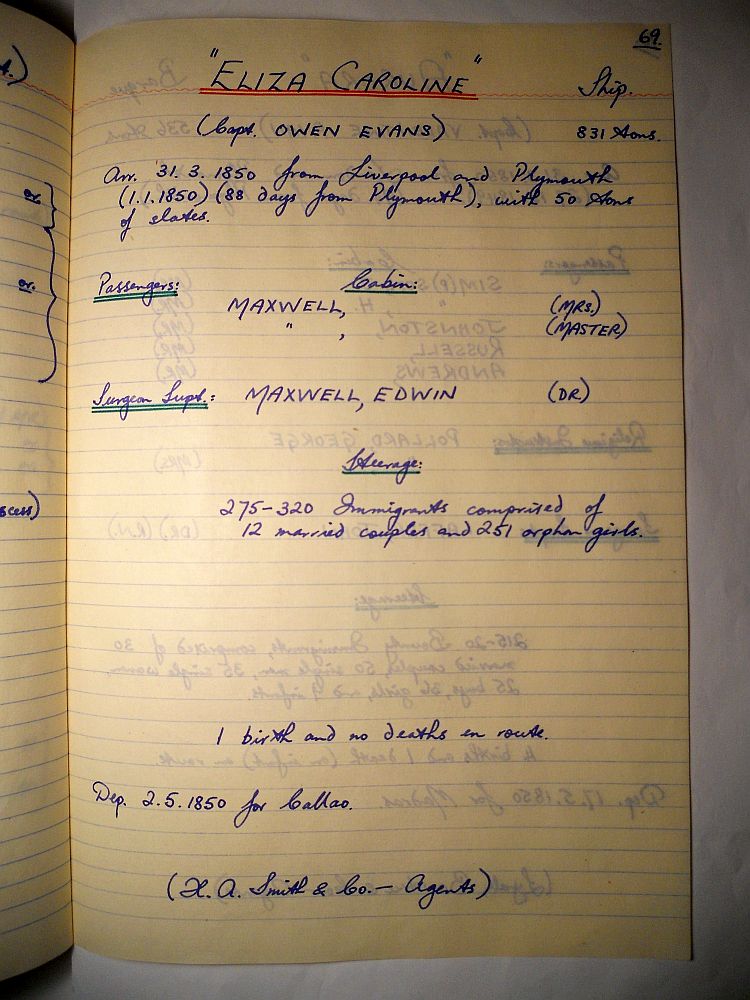 69.
"ELIZA CAROLINE" Ship.
(Capt. OWEN EVANS) 831 tons.
Arr. 31.3.1850 from Liverpool and Plymouth
(1.1.1850) (88 days from Plymouth), with 50 tons
of slates.
Passengers: Cabin:
MAXWELL, (MRS.)
" , (MASTER)
Surgeon Supt.: MAXWELL, EDWIN (DR)
Steerage:
275-320 Immigrants comprised of
12 married couples and 251 orphan girls.
1 birth and no deaths en route.
Dep. 2.5.1850 for Callao.
(H. A. Smith & Co. — Agents)